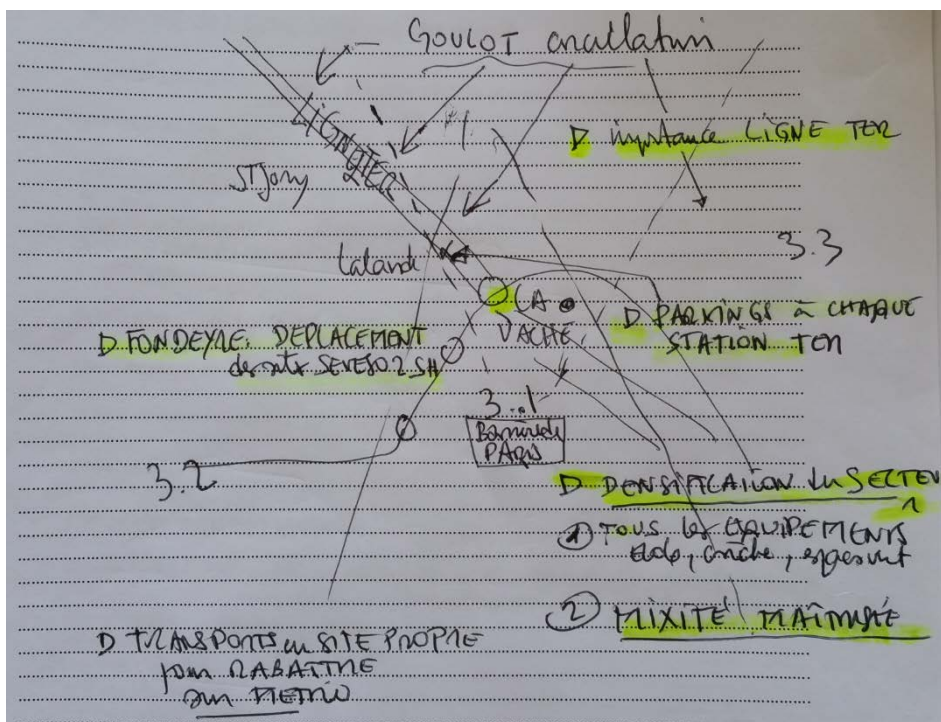 GOULOT
D importance LIGNE TER
LIGNE TER
ST Jory
3.3
Lalande
LA
VACHE
D PARKINGS à CHAQUE
STATION TER
D FONDEYRE: DEPLACEMENT
des sites SEVESO 2 SH
3.1
Barrière de
PARIS
3.2
D DENSIFICATION du SECTEUR
① TOUS les EQUIPEMENTS
école, crèche, espaces vert
② MIXITÉ MAÎTRISÉE
D TRANSPORTS en SITE PROPRE
pour RABATTRE
sur METRO